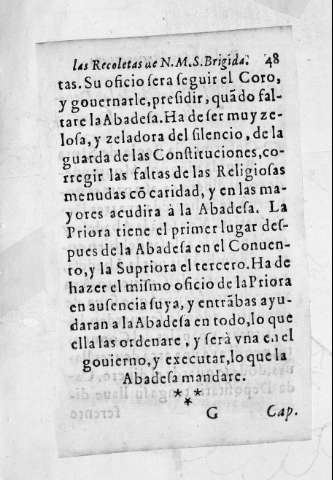 las Recoletas de N.M.S. Brigida. 48
tas. Su oficio sera seguir el Coro,
y gouernarle, presidir, quãdo fal-
tare la Abadesa. Ha de ser muy ze-
losa, y zeladora del silencio, de la
guarda de las Constituciones, co-
rregir las faltas de las Religiosas
menudas cõ caridad, y en las ma-
yores acudira à la Abadesa. La
Priora tiene el primer lugar des-
pues de la Abadesa en el Conuen-
to, y la Supriora el tercero. Ha de
hazer el mismo oficio de la Priora
en ausencia suya, y entrãbas ayu-
daran a la Abadesa en todo, lo que
ella las ordenare, y serà vna en el
gouierno, y executar, lo que la
Abadesa mandare.
***
G Cap.